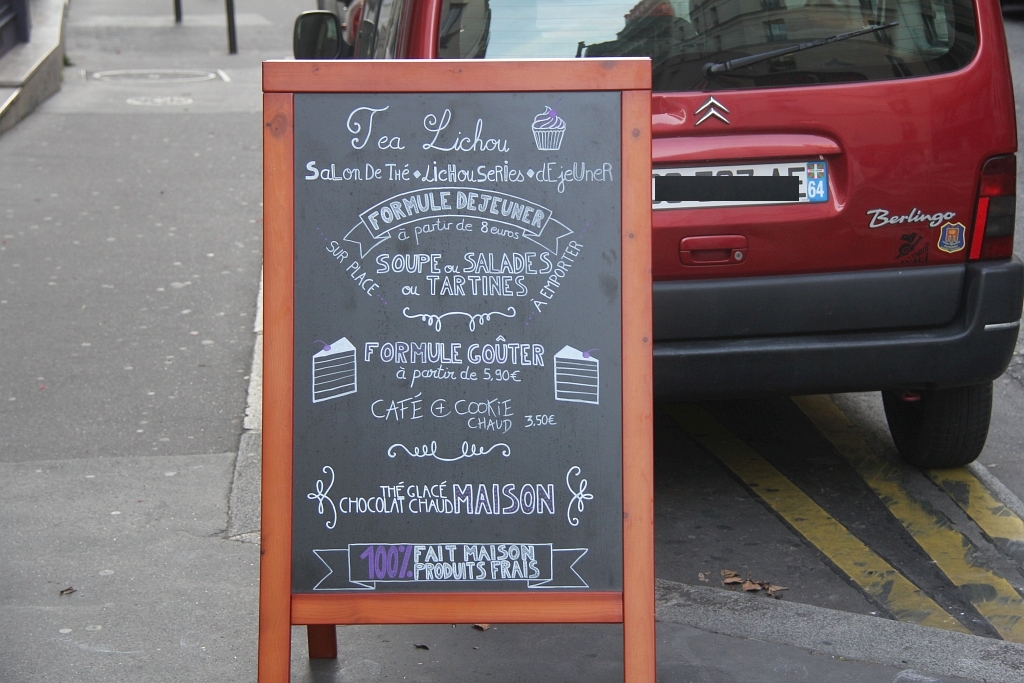 Tea Lichou
Salon De Thé • LicHouSeRies • dEjeUneR
FORMULE DEJEUNER
à partir de 8 euros
SUR PLACE
SOUPE ou SALADES
ou TARTINES
À EMPORTER
FORMULE GOÛTER
à partir de 5,90€
CAFÉ + COOKIE
CHAUD 3,50€
THÉ GLACÉ
CHOCOLAT CHAUD MAISON
100% FAIT MAISON
PRODUITS FRAIS
64
Berlingo